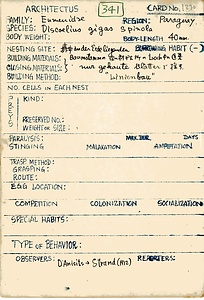 ARCHITECTUS 341 CARD NO.
FAMILY: Eumenidae REGION: Paraguay
SPECIES: Discoelius gigas Spinola
BODY WEIGHT: BODY LENGTH 40 mm.
NESTING SITE: BURROWING HABIT (–)
BUILDING MATERIALS:
CLOSING MATERIALS: nur gekaute Blätter
BUILDING METHOD:
NO. CELLS IN EACH NEST
PREYS KIND:
PRESERVED NO.:
WEIGHT OR SIZE:
PARALYSIS: MAX. DUR. DAYS
STINGING MALAXATION AMPUTATION
TRASP. METHOD:
GRASPING:
ROUTE:
EGG LOCATION:
COMPETITION COLONIZATION SOCIALIZATION
SPECIAL HABITS:
TYPE OF BEHAVIOR:
OBSERVERS: REPORTERS: